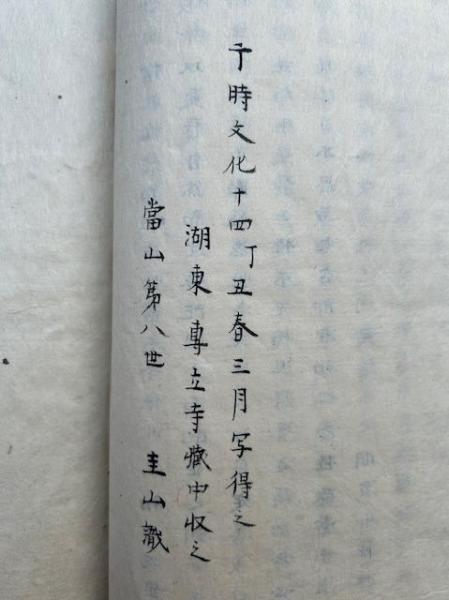 于時文化十四丁丑春三月写得之
湖東専立寺蔵中収之
當山第八世 圭山識